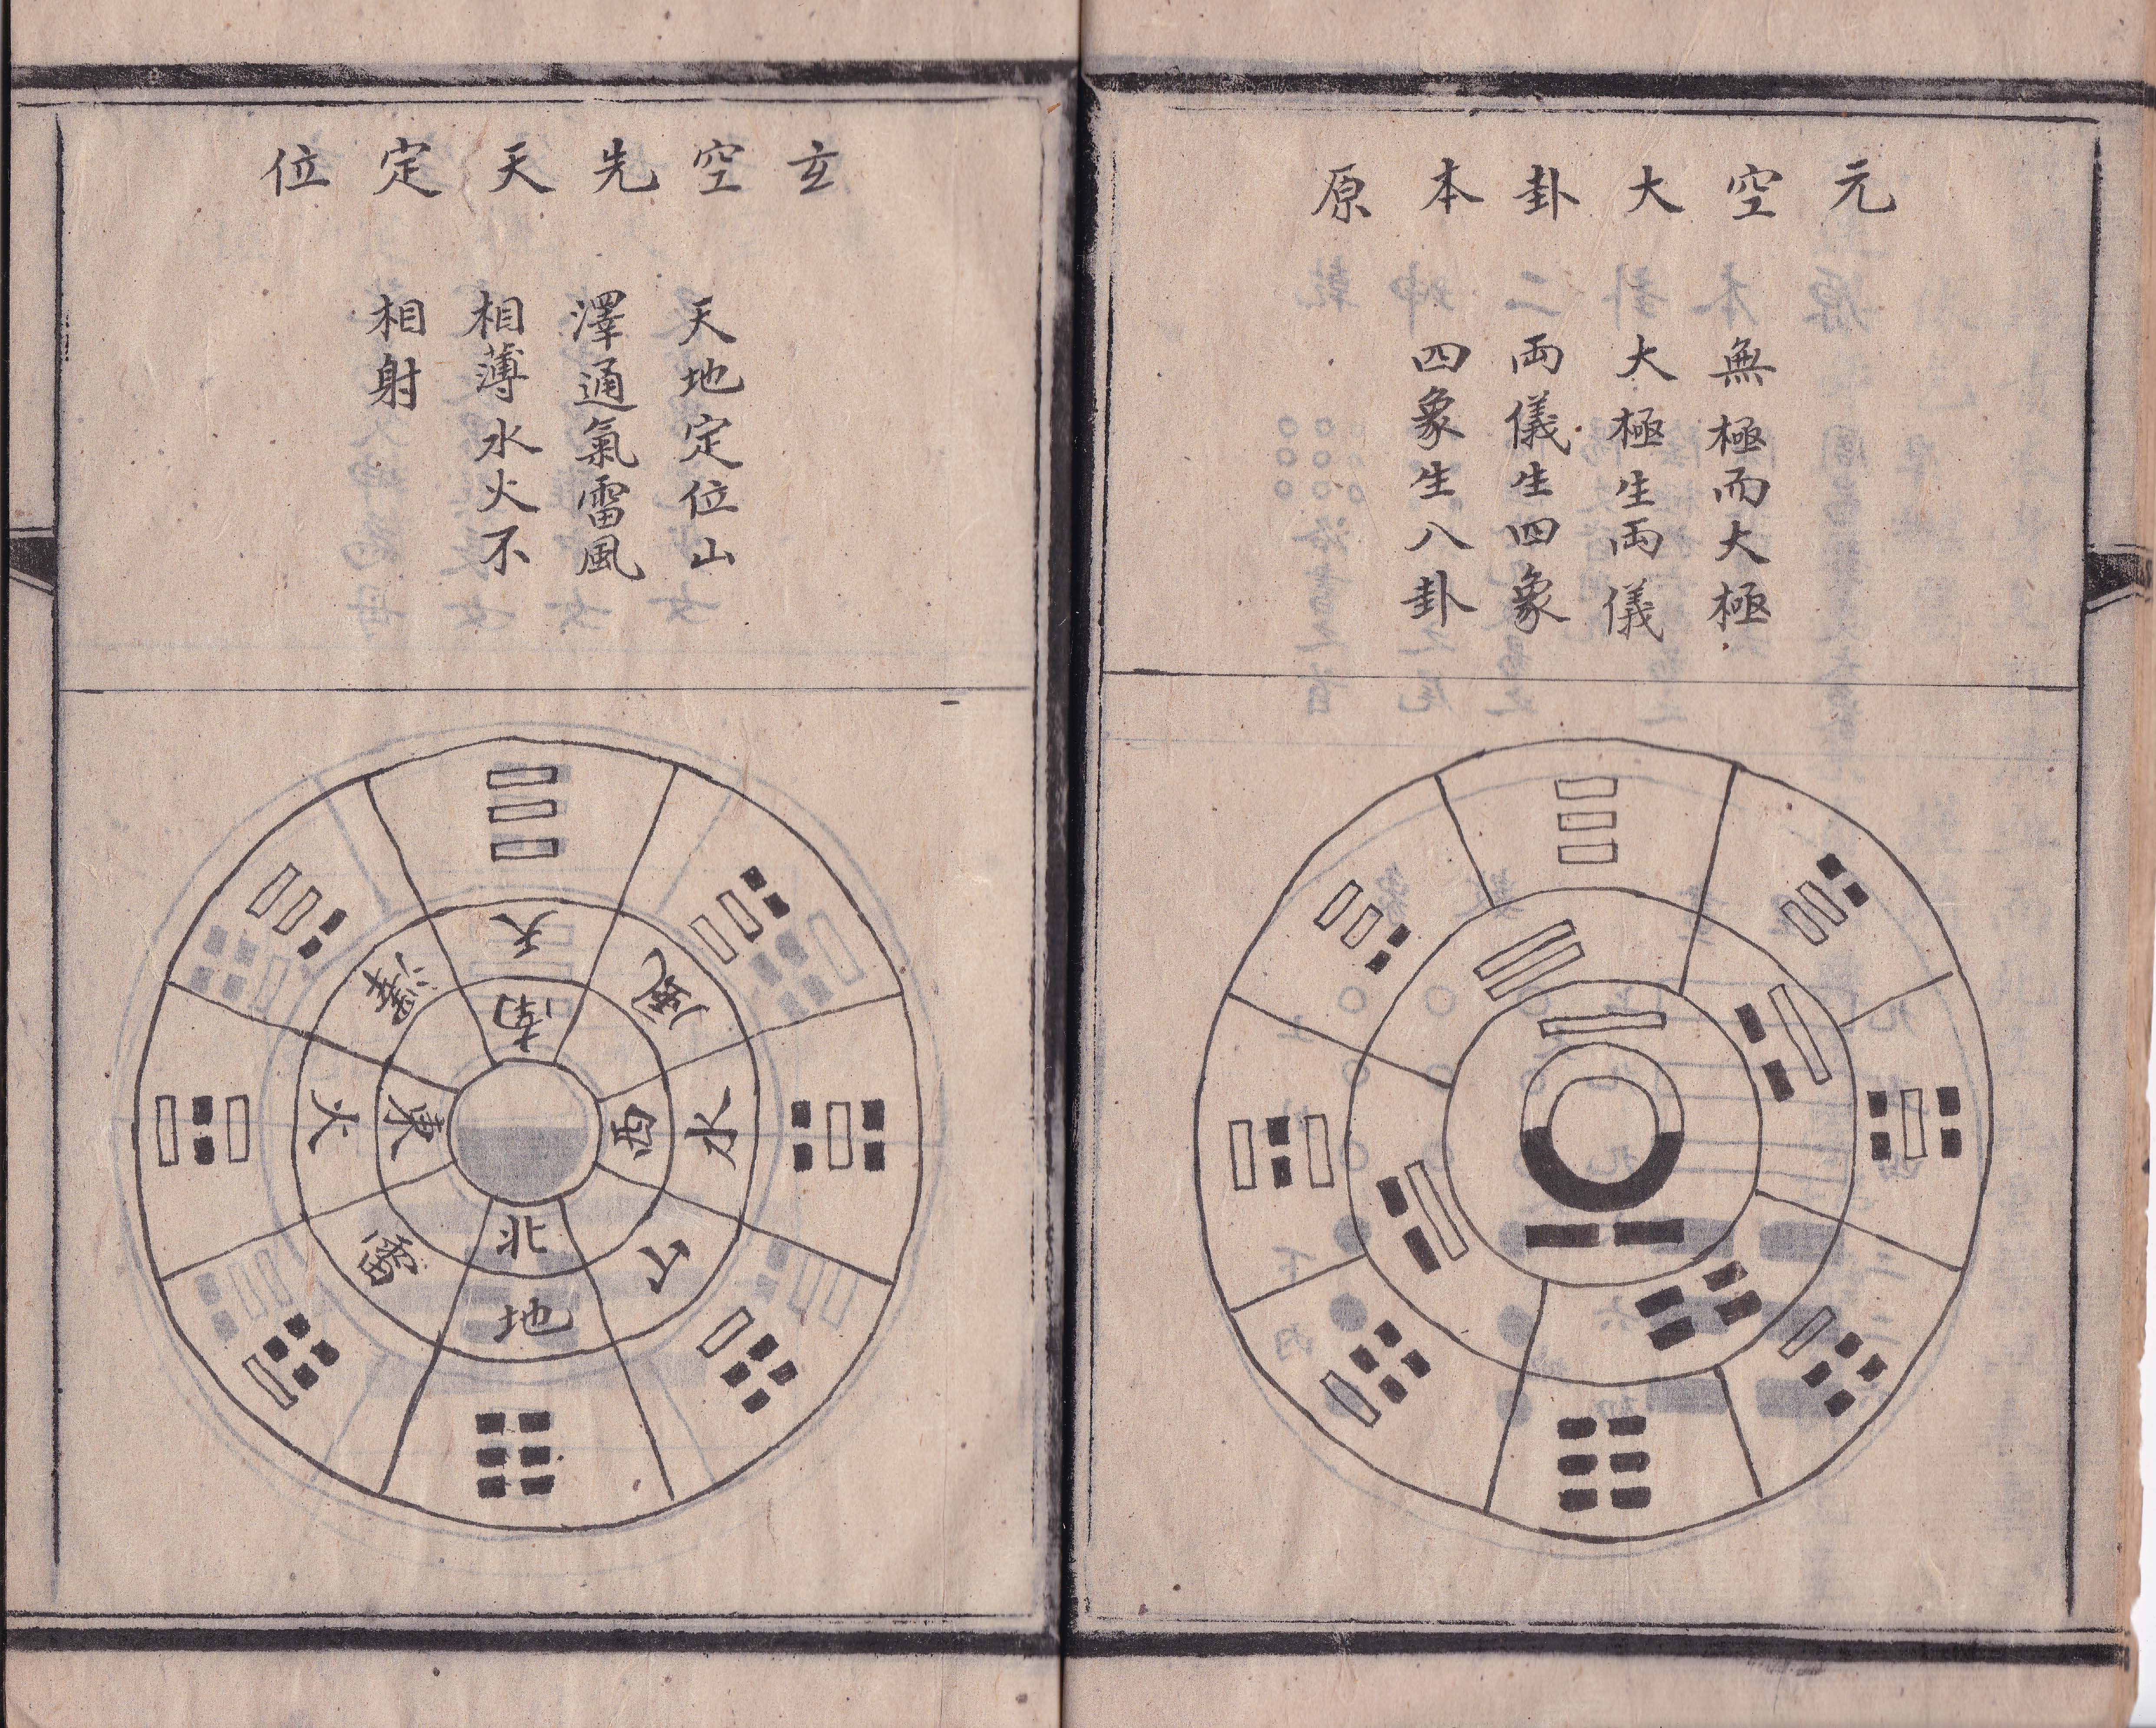 元空大卦本原
無極而大極
大極生両儀
両儀生四象
四象生八卦
玄空先天定位
天地定位山
澤通氣雷風
相薄水火不
相射
天
風
水
山
地
雷
火
澤
南
西
北
東